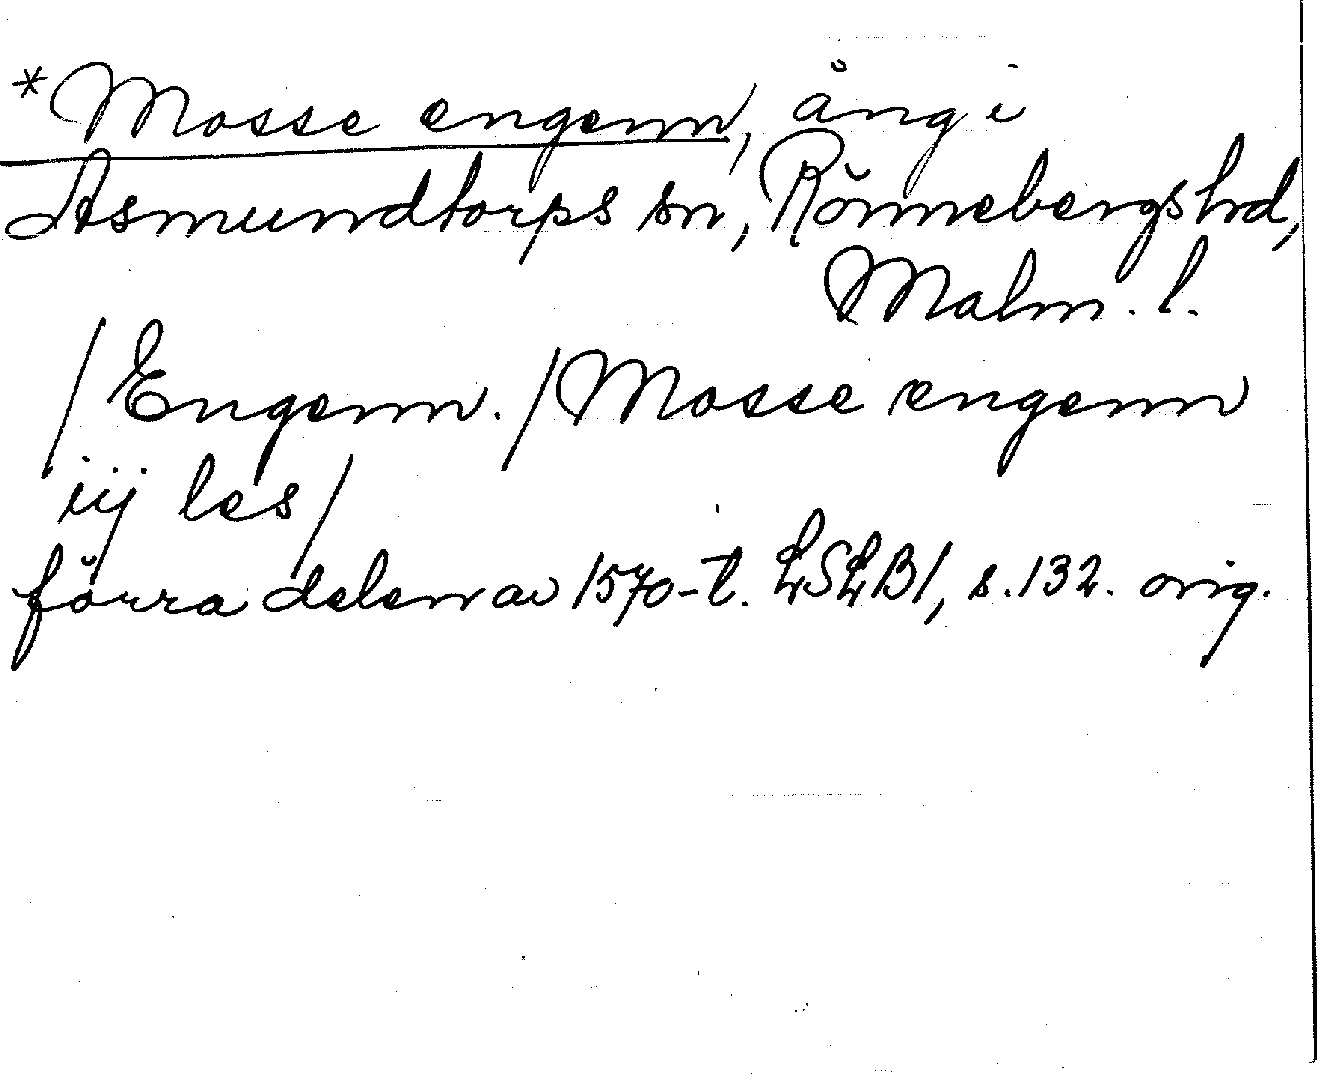 *Mosse engenn, äng i
Asmundtorps sn, Rönnebergs hd,
Malm. l.
/Engenn./Mosse engenn
iij les/
förra delen av 1570-t. LSLB1, s. 132. orig.